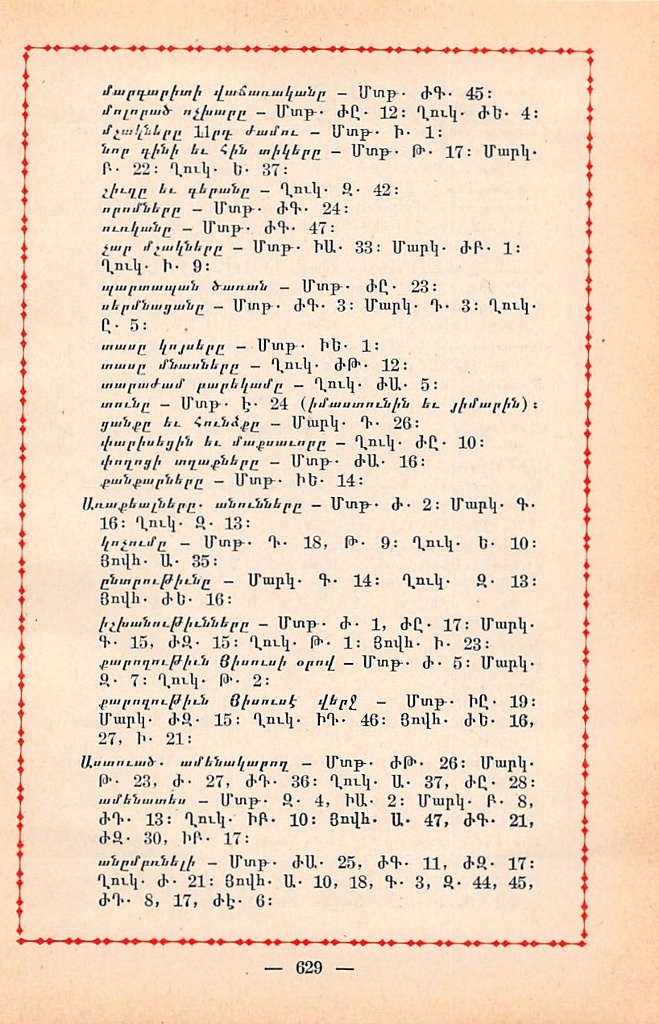 մարգարիտի վաճառականը – Մտթ· ԺԳ· 45:
մոլորած ոչխարը – Մտթ· ԺԸ· 12: Ղուկ· ԺԵ· 4:
մշակները 11րդ ժամու – Մտթ· Ի· 1:
նոր գինի եւ հին տիկերը – Մտթ· Թ· 17: Մարկ·
Բ· 22: Ղուկ· Ե· 37:
շիւղը եւ գերանը – Ղուկ· Զ· 42:
որոմները – Մտթ· ԺԳ· 24:
ուռկանը – Մտթ· ԺԳ· 47:
չար մշակները – Մտթ· ԻԱ· 33: Մարկ· ԺԲ· 1:
Ղուկ· Ի· 9:
պարտապան ծառան – Մտթ· ԺԸ· 23:
սերմնացանը – Մտթ· ԺԳ· 3: Մարկ· Դ· 3: Ղուկ·
Ը· 5:
տասը կոյսերը – Մտթ· ԻԵ· 1:
տասը մնասները – Ղուկ· ԺԹ· 12:
տարաժամ բարեկամը – Ղուկ· ԺԱ· 5:
տունը – Մտթ· Է· 24 (իմաստունին եւ յիմարին):
ցանքը եւ հունձքը – Մարկ· Դ· 26:
փարիսեցին եւ մաքսաւորը – Ղուկ· ԺԸ· 10:
փողոցի տղաքները – Մտթ· ԺԱ· 16:
քանքարները – Մտթ· ԻԵ· 14:
Առաքեալները· անունները – Մտթ· Ժ· 2: Մարկ· Գ·
16: Ղուկ· Զ· 13:
կոչումը – Մտթ· Դ· 18, Թ· 9: Ղուկ· Ե· 10:
Յովհ· Ա· 35:
ընտրութիւնը – Մարկ· Գ· 14: Ղուկ· Զ· 13:
Յովհ· ԺԵ· 16:
իշխանութիւնները – Մտթ· Ժ· 1, ԺԸ· 17: Մարկ·
Գ· 15, ԺԶ· 15: Ղուկ· Թ· 1: Յովհ· Ի· 23:
քարոզութիւն Յիսուսի օրով – Մտթ· Ժ· 5: Մարկ·
Զ· 7: Ղուկ· Թ· 2:
քարոզութիւն Յիսուսէ վերջ – Մտթ· ԻԸ· 19:
Մարկ· ԺԶ· 15: Ղուկ· ԻԴ· 46: Յովհ· ԺԵ· 16,
27, Ի· 21:
Աստուած· ամենակարող – Մտթ· ԺԹ· 26: Մարկ·
Թ· 23, Ժ· 27, ԺԴ· 36: Ղուկ· Ա· 37, ԺԸ· 28:
ամենատես – Մտթ· Զ· 4, ԻԱ· 2: Մարկ· Բ· 8,
ԺԴ· 13: Ղուկ· ԻԲ· 10: Յովհ· Ա· 47, ԺԳ· 21,
ԺԶ· 30, ԻԲ· 17:
անըմբռնելի – Մտթ· ԺԱ· 25, ԺԳ· 11, ԺԶ· 17:
Ղուկ· Ժ· 21: Յովհ· Ա· 10, 18, Գ· 3, Զ· 44, 45,
ԺԴ· 8, 17, ԺԷ· 6:
— 629 —